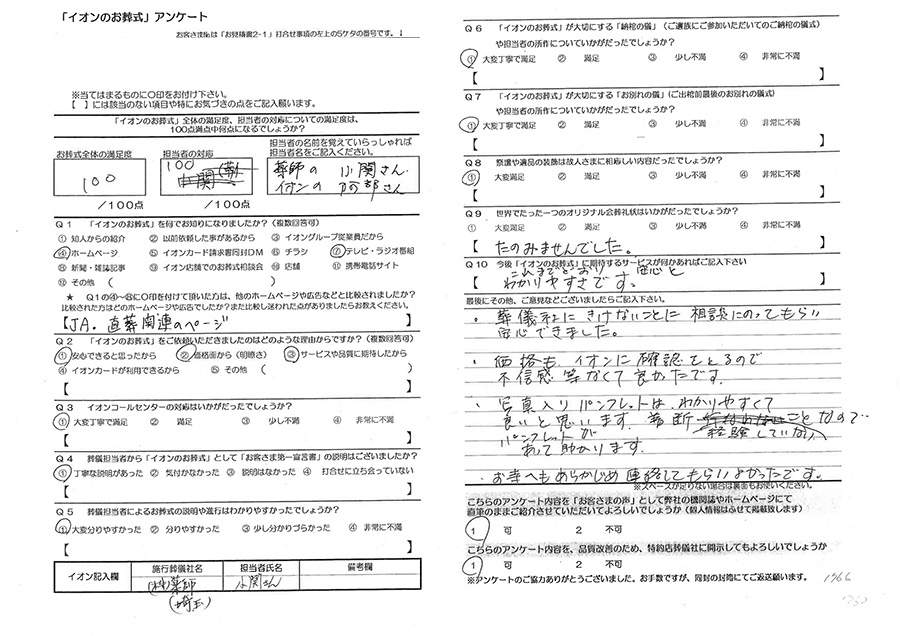 「イオンのお葬式」アンケート
お客さま番号は「お見積書2-1」打合せ事項の左上の5ケタの番号です。
※当てはまるものに○印をお付け下さい。
【 】には該当のない項目や特にお気づきの点をご記入願います。
「イオンのお葬式」全体の満足度、担当者の対応についての満足度は、
100点満点中何点になるでしょうか?
お葬式全体の満足度 担当者の対応
担当者の名前を覚えていらっしゃれば
担当者名をご記入ください。
100 100
薬師の 小関さん.
イオンの 阿部さん
/100点 /100点
Q1 「イオンのお葬式」を何でお知りになりましたか?(複数回答可)
① 知人からの紹介 ② 以前依頼した事があるから ③ イオングループ従業員だから
④ ホームページ ⑤ イオンカード請求書同封DM ⑥ チラシ ⑦ テレビ・ラジオ番組
⑧ 新聞・雑誌記事 ⑨ イオン店舗でのお葬式相談会 ⑩ 店舗 ⑪ 携帯電話サイト
⑫ その他 ( )
★ Q1の④~⑧に○印を付けて頂いた方は、他のホームページや広告などと比較されましたか?
比較された方はどのホームページや広告でしたか?また比較し迷われた点がありましたらお教えください。
【JA・直葬関連のページ
Q2 「イオンのお葬式」をご依頼いただきましたのはどのような理由からですか?(複数回答可)
① 安心できると思ったから ② 価格面から(明瞭さ) ③ サービスや品質に期待したから
④ イオンカードが利用できるから ⑤ その他 ( )
【 】
Q3 イオンコールセンターの対応はいかがだったでしょうか?
① 大変丁寧で満足 ② 満足 ③ 少し不満 ④ 非常に不満
【 】
Q4 葬儀担当者から「イオンのお葬式」として「お客さま第一宣言書」の説明はございましたか?
① 丁寧な説明があった ② 気付かなかった ③ 説明はなかった ④ 打合せに立ち会っていない
【 】
Q5 葬儀担当者によるお葬式の説明や進行はわかりやすかったでしょうか?
① 大変分りやすかった ② 分りやすかった ③ 少し分かりづらかった ④ 非常に不満
【 】
イオン記入欄 施行葬儀社名 担当者氏名 備考欄
(株)薬師 小関さん
(埼玉)
Q6 「イオンのお葬式」が大切にする「納棺の儀」(ご遺族にご参加いただいてのご納棺の儀式)
や担当者の所作についていかがだったでしょうか?
① 大変丁寧で満足 ② 満足 ③ 少し不満 ④ 非常に不満
【 】
Q7 「イオンのお葬式」が大切にする「お別れの儀」(ご出棺前最後のお別れの儀式)
や担当者の所作についていかがだったでしょうか?
① 大変丁寧で満足 ② 満足 ③ 少し不満 ④ 非常に不満
【 】
Q8 祭壇や遺品の装飾は故人さまに相応しい内容だったでしょうか?
① 大変満足 ② 満足 ③ 少し不満 ④ 非常に不満
【 】
Q9 世界でたった一つのオリジナル会葬礼状はいかがだったでしょうか?
① 大変満足 ② 満足 ③ 少し不満 ④ 非常に不満
【 たのみませんでした。 】
Q10 今後「イオンのお葬式」に期待するサービスが何かあればご記入下さい
これまでどおり 安心と
【 わかりやすさです。 】
最後にその他、ご意見などございましたらご記入下さい。
・葬儀社にきけないことに相談にのってもらい
安心できました。
・価格も イオンに確認をとるので
不信感等なくて良かったです.
・写真入りパンフレットは、わかりやすくて
良いと思います. 普断 ことなので…
経験していない
パンフレットが
あって助かります.
・お寺へもあらかじめ連絡してもらいよかったです。
※スペースが足りない場合は裏面もお使いください。
こちらのアンケート内容を「お客さまの声」として弊社の機関誌やホームページにて
直筆のままご紹介させていただいてよろしいでしょうか(個人情報はふせて掲載致します)
1 可 2 不可
こちらのアンケート内容を、品質改善のため、特約店葬儀社に開示してもよろしいでしょうか
1 可 2 不可
※アンケートのご協力ありがとうございました。お手数ですが、同封の封筒にてご返送願います。
1766